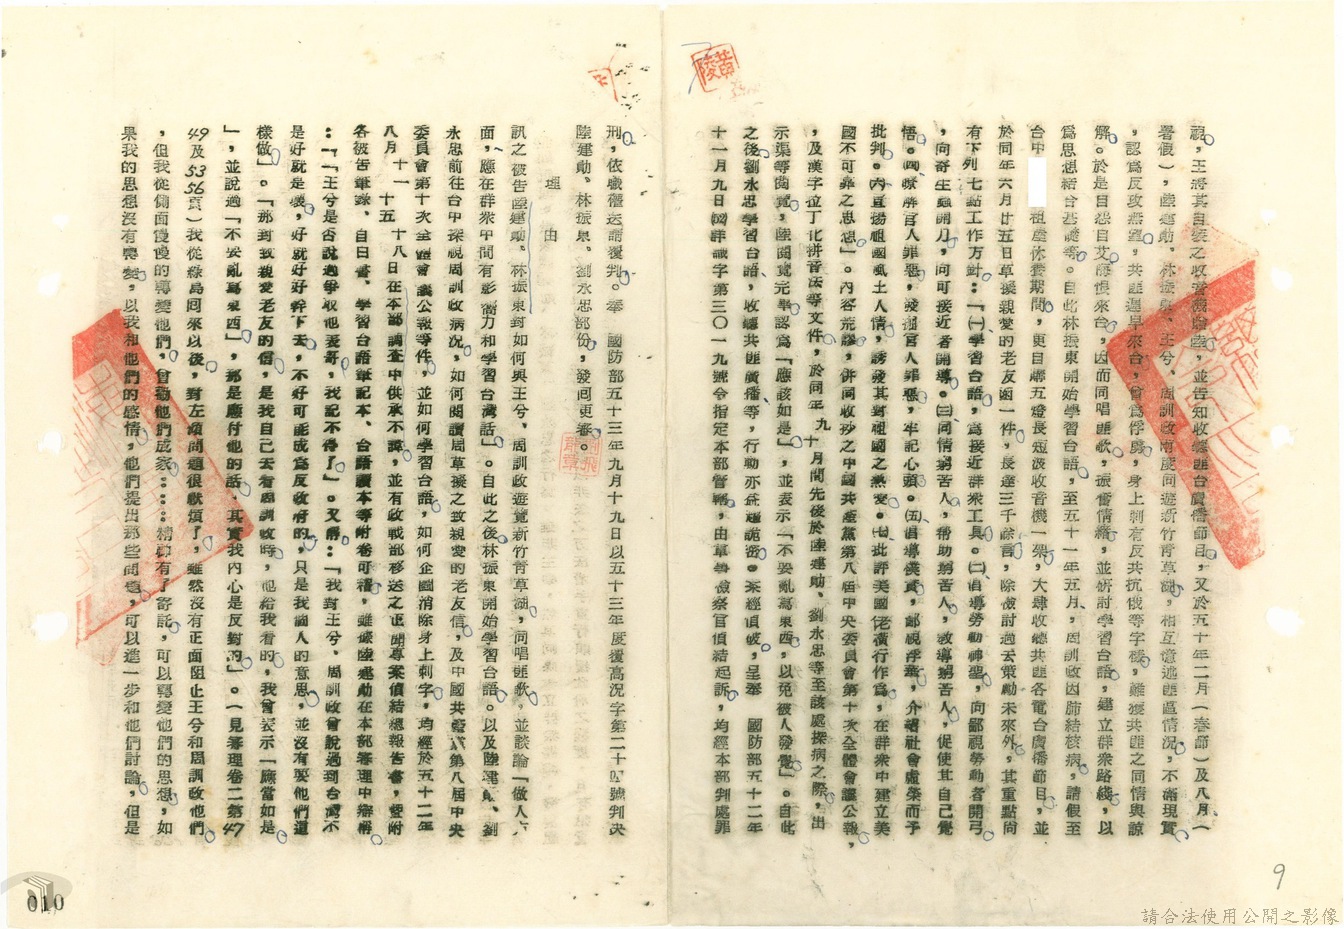 視，王將其自裝之收音機賒陸，並告知收聽匪台廣播節目，又於五十年二月（春節）及八月（
署假），陸建勋、林振東、王兮、周訓政兩度同遊新竹青草湖，相互憶述匪區情況，不滿現實
，認爲反攻無望，共匪遲早來台，曾爲俘虜，身上刺有反共抗俄等字樣，難獲共匪之同情與諒
解。於是自怨自艾悔恨來台，因而同唱匪歌，振奮情緒，並研討學習台語，建立群衆路綫，以
爲思想結合基礎等。自此林振東開始學習台語，至五十一年五月，周訓政因肺結核病，請假至
台中　租屋休養期間，更自購五燈長短波收音機一架，大肆收聽共匪各電台廣播節目，並
於同年六月廿五日草擬親愛的老友函一件，長達三千餘言，除檢討過去策勵未來外，其重點尚
有下列七點工作方針：「㈠學習台語，爲接近群衆工具。㈡倡導勞動神聖，向鄙視勞動者開弓
，向寄生蟲開刀，向可接近者開導。㈢同情窮苦人，幫助窮苦人，教導窮苦人，促使其自己覺
悟。㈣瞭解官人罪惡，談迥官人罪惡，牢記心頭。㈤倡導僕實，鄙視浮華，介紹社會虛榮而予
批判。㈥宣揚祖國風土人情，誘發其對祖國之熱愛。㈦批評美國佬橫行作爲，在群衆中建立美
國不可靠之思想」。內容荒謬，併同收抄之中國共產黨第八屆中央委員會第十次全體會議公報，
，及漢字拉丁化拼音法等文件，於同年九十月間先後於陸建勋、劉永忠等至該處探病之際，出
示渠等閱覽，陸閱覽完畢認爲「應該如是」，並表示「不要亂寫東西，以免被人發覺」。自此
之後劉永忠學習台語，收聽共匪廣播等，行動亦益趨詭密。案經偵破，呈奉　國防部五十二年
十一月九日㈣詳識字第三〇一九號令指定本部管轄，由軍事檢察官偵結起訴，均經本部判處罪
刑，依職權送請覆判。奉　國防部五十三年九月十九日以五十三年度覆高況字第二十　號判決
陸建勋、林振東、劉永忠部份，發回更審。
理由
訊之被告陸建勋、林振東對如何與王兮、周訓政遊覽新竹青草湖，同唱匪歌，並談論「做人方
面，應在群衆中間有影響力和學習台灣話」。自此之後林振東開始學習台語。以及陸建勋、劉
永忠前往台中探視周訓政病況，如何閱讀周草擬之致親愛的老友信，及中國共產黨第八屆中央
委員會第十次全體會議公報等件，並如何學習台語，如何企圖消除身上刺字，均經於五十二年
八月十一十五十八日在本部調查中供承不諱，並有收戰部移送之正開專案偵結總報告書，暨附
各被告筆錄、自白書、學習台語筆記本、台語讀本等附卷可稽，雖據陸建勋在本部審理中辯稱
：「「王兮是否說過爭取他表哥，我記不得了」。又稱：「我對王兮、周訓政曾說過到台灣不
是好就是壞，好就好好幹下去，不好可能成爲反政府的，只是我個人的意思，並沒有要他們這
樣做」。「那封致親愛老友的信，是我自己去看周訓政時，他給我看的，我曾表示一應當如是
」，並說過「不要亂寫東西」，那是應付他的話，其實我內心是反對的」。（見審理卷二第47
49及5356頁）我從綠島回來以後，對左傾問題很厭煩了，雖然沒有正面阻止王兮和周訓政他們
，但我從側面慢慢的轉變他們，曾勸他們成家……精神有了寄託，可以轉變他們的思想，如
果我的思想沒有轉變，以我和他們的感情，他們提出那些問題，可以進一步和他們討論，但是
9
010
請合法使用公開之影像